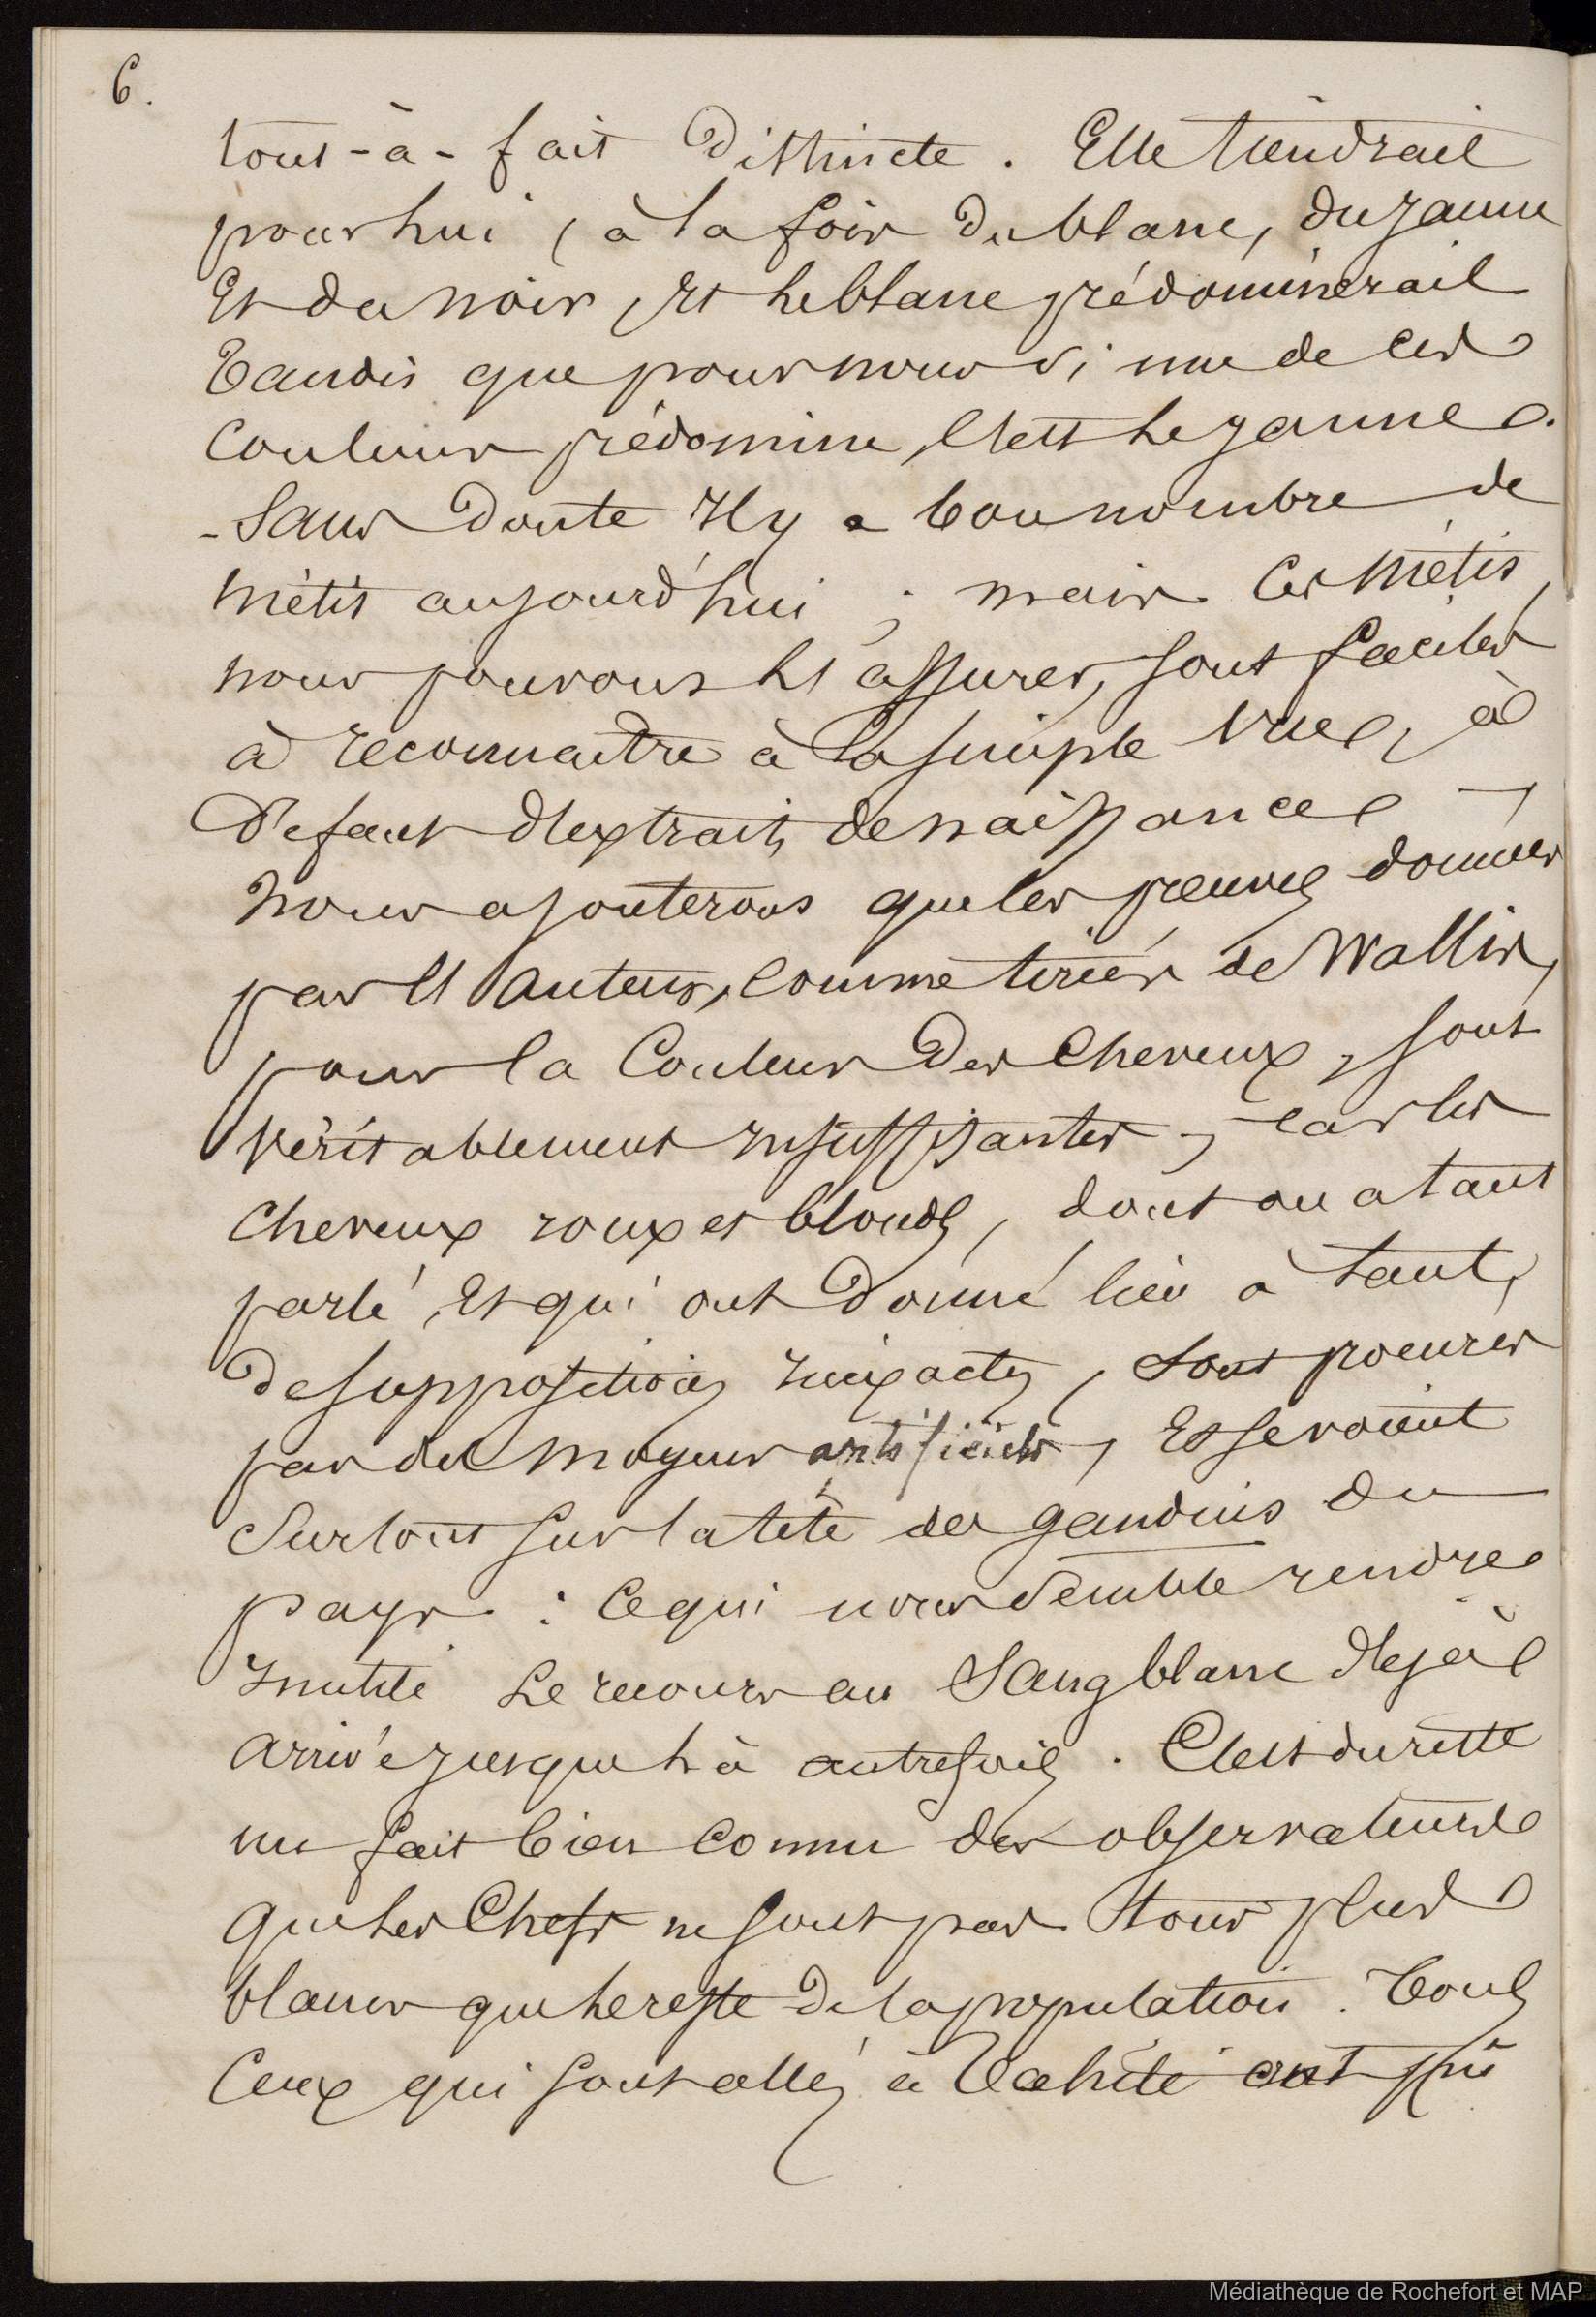 6.
tout-à-fait distincte. Elle tiendrait
pour lui, à la fois du blanc, du jaune
et du noir, et le blanc prédominerait
tandis que pour nous si une de ces
couleurs prédomine, c'est le jaune.
- Sans doute il y a bon nombre de
métis aujourd'hui ; mais ces métis,
nous pouvons l'assurer, sont faciles
à reconnaitre à la simple vue, à
défaut d'extraits de naissance —
Nous ajouterons que les preuves données
par l'auteur, comme tirées de Wallis,
pour la couleur des cheveux, sont
véritablement insuffisantes, car les
cheveux roux et blonds, dont on a tant
parlé, et qui ont donné lieu à tant
de suppositions inexactes, sont procurés
par des moyens artificiels, et se voient
surtout sur la tête des gandins du
pays : ce qui nous semble rendre
inutile le recours au sang blanc déjà
arrivé jusque là autrefois. C'est du reste
un fait bien connu des observateurs
que les chefs ne sont pas tous plus
blancs que le reste de la population. Tous
ceux qui sont allés à Tahiti ont pu
Médiathèque de Rochefort et MAP